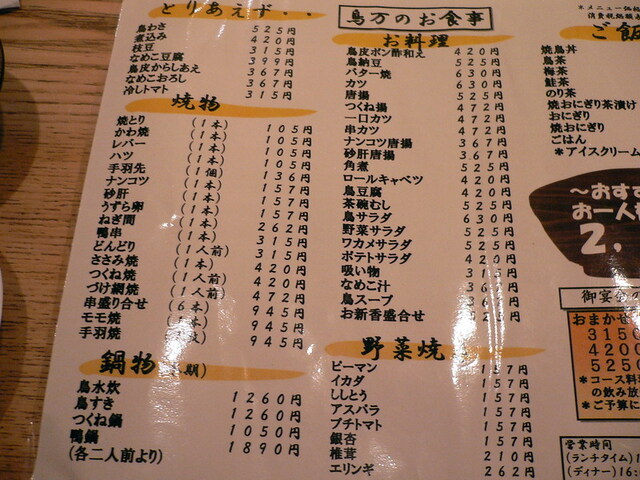 とりあえず・・
鳥わさ 525円
煮込み 420円
枝豆 315円
なめこ豆腐 399円
鳥皮からしあえ 367円
なめこおろし 367円
冷しトマト 315円
焼物
焼とり (1本) 105円
かわ焼 (1本) 105円
レバー (1本) 105円
ハツ (1本) 105円
手羽先 (1個) 136円
ナンコツ (1本) 157円
砂肝 (1本) 157円
うずら卵 (1本) 157円
ねぎ間 (1本) 262円
鴨串 (1本) 315円
どんどり (1人前) 315円
ささみ焼 (1本) 420円
つくね焼 (1人前) 420円
づけ網焼 (1人前) 472円
串盛り合せ 945円
モモ焼 945円
手羽焼 945円
鍋物 期)
鳥水炊 1260円
鳥すき 1260円
つくね鍋 1050円
鴨鍋 1890円
(各二人前より)
鳥万のお食事
お料理
鳥皮ポン酢和え 420円
鳥納豆 525円
バター焼 630円
カツ 630円
唐揚 525円
つくね揚 472円
一口カツ 472円
串カツ 472円
ナンコツ唐揚 367円
砂肝唐揚 367円
角煮 525円
ロールキャベツ 420円
鳥豆腐 420円
茶碗むし 525円
鳥サラダ 630円
野菜サラダ 525円
ワカメサラダ 525円
ポテトサラダ 420円
吸い物 315円
なめこ汁
鳥スープ
お新香盛合せ 525円
野菜焼
ピーマン 157円
イカダ 157円
ししとう 157円
アスパラ 157円
プチトマト 157円
銀杏 157円
椎茸 210円
エリンギ 262円
※メニュー価格
消費税総額
ご飯
焼鳥丼
鳥茶
梅茶
鮭茶
のり茶
焼おにぎり茶漬け
おにぎり
焼おにぎり
ごはん
*アイスクリーム
〜おす
お一人
2,
御宴会
おまかせ
3150
4200
5250
*コース料
の飲み放
*ご予算に
営業時間
(ランチタイム)1
(ディナー)16: